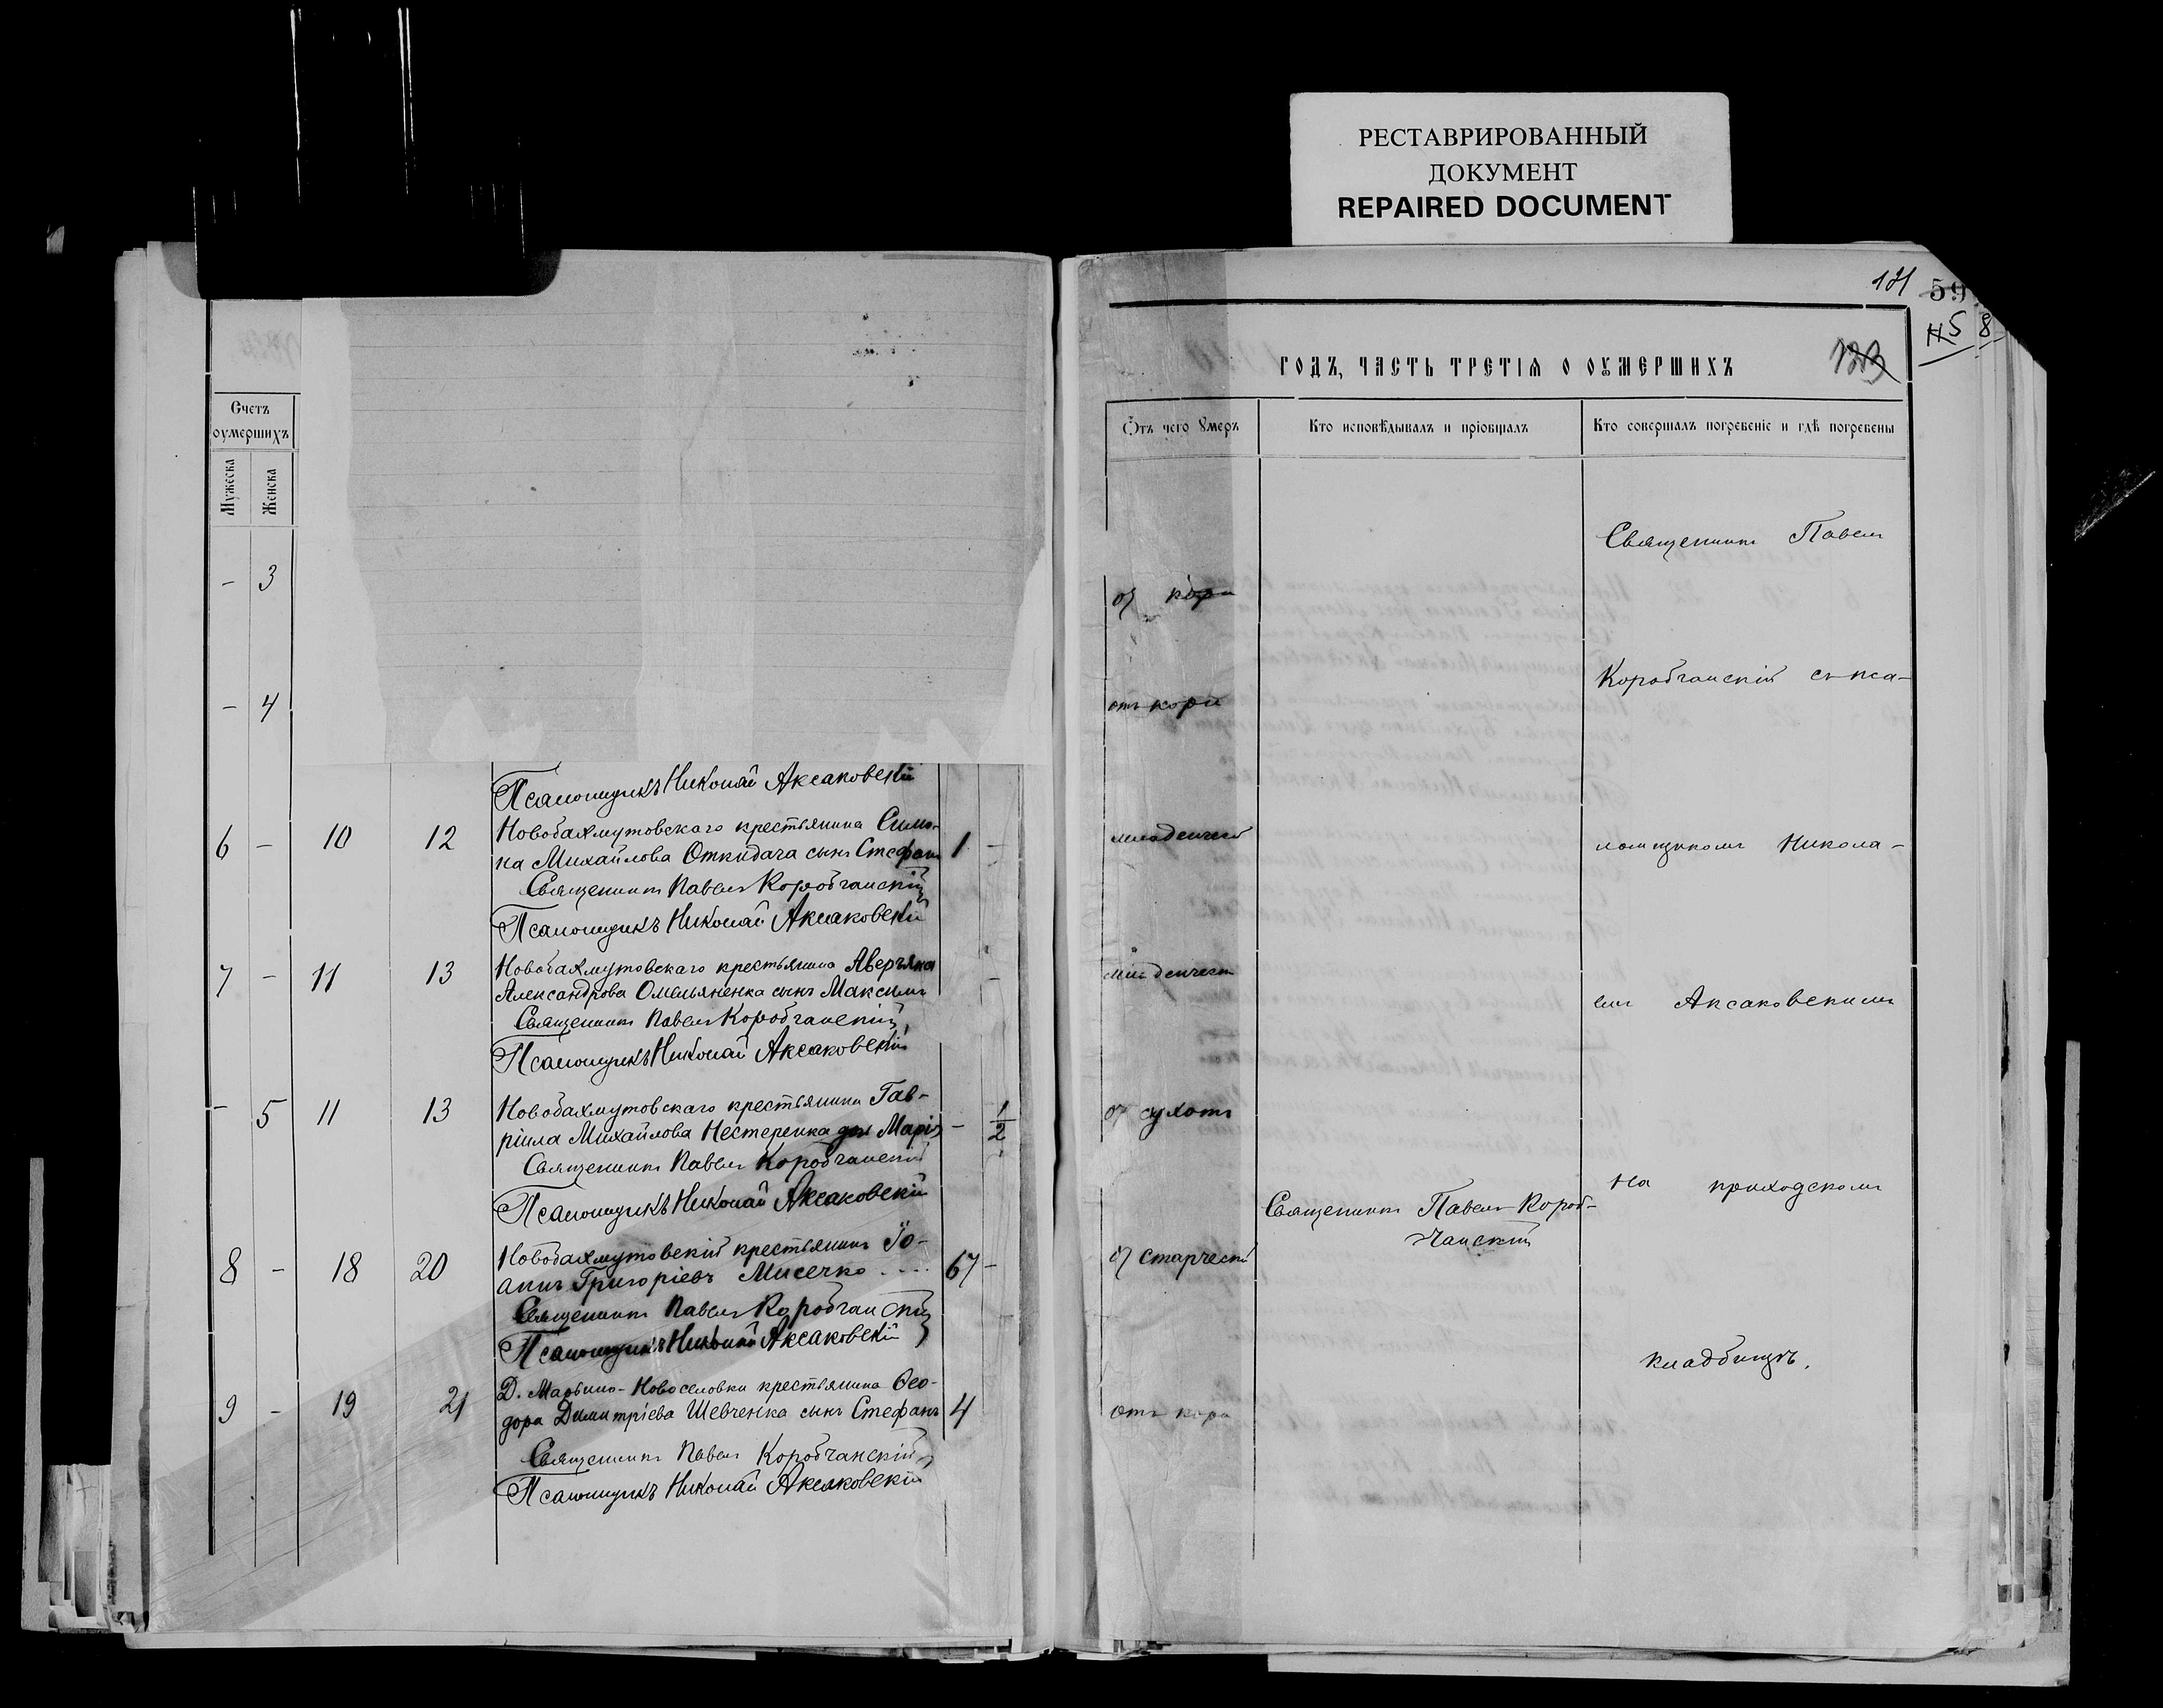 РЕСТАВРИРОВАННЫЙ
ДОКУМЕНТ
REPAIRED DOCUMENT
Счетъ
оумершихъ
Мужеска
Женска
- 3
- 4
Псаломщикъ Николай Аксаковскій
6 - 10 12 Новобахмутовскаго крестьянина Симо-
на Михайлова Откидача сынъ Стефанъ 1 -
Священникъ Павелъ Коробчанскій
Псаломщикъ Николай Аксаковскій
7 - 11 13 Новобахмутовскаго крестьянина Аверьяна
Александрова Омельяненка сынъ Максимъ -
Священникъ Павелъ Коробчанскій
Псаломщикъ Николай Аксаковскій
- 5 11 13 Новобахмутовскаго крестьянина Гав-
ріила Михайлова Нестеренка дочь Марія - 1/2
Священникъ Павелъ Коробчанскій
Псаломщикъ Николай Аксаковскій
8 - 18 20 Новобахмутовскій крестьянинъ Іо-
аннъ Григоріевъ Мисечко 67 -
Священникъ Павелъ Коробчанскій
Псаломщикъ Николай Аксаковскій
9 - 19 21 Д. Марьино-Новоселовки крестьянина Ѳео-
дора Димитріева Шевченка сынъ Стефанъ 4
Священникъ Павелъ Коробчанскій
Псаломщикъ Николай Аксаковскій
121
59
115 8
123
годъ, часть третія о оумершихъ
Отъ чего умеръ
Кто исповѣдывалъ и пріобщалъ
Кто совершалъ погребеніе и гдѣ погребены
Священникъ Павелъ
от кори
Коробчанскій съ пса-
отъ кори
младенческ
ломщикомъ Никола-
младенческ
емъ Аксаковскимъ
от сухотъ
на приходскомъ
Священникъ Павелъ Короб-
чанскій
от старческ
кладбищѣ.
отъ кори